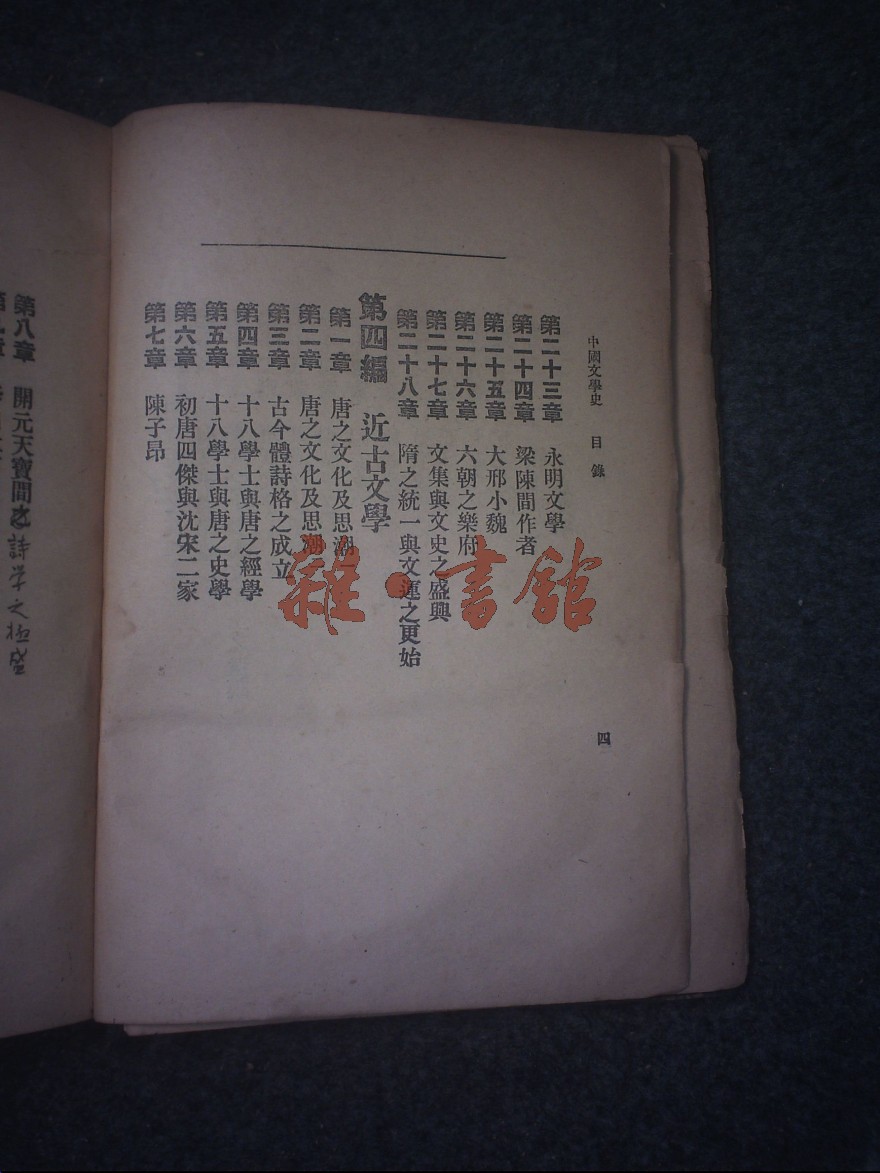 中國文學史 目錄 四
第二十三章 永明文學
第二十四章 梁陳間作者
第二十五章 大邢小魏
第二十六章 六朝之樂府
第二十七章 文集與文史之盛興
第二十八章 隋之統一與文運之更始
第四編 近古文學
第一章 唐之文化及思潮
第二章 唐之文化及思潮
第三章 古今體詩格之成立
第四章 十八學士與唐之經學
第五章 十八學士與唐之史學
第六章 初唐四傑與沈宋二家
第七章 陳子昂
第八章 開元天寶間之詩学之极盛
雜·書館